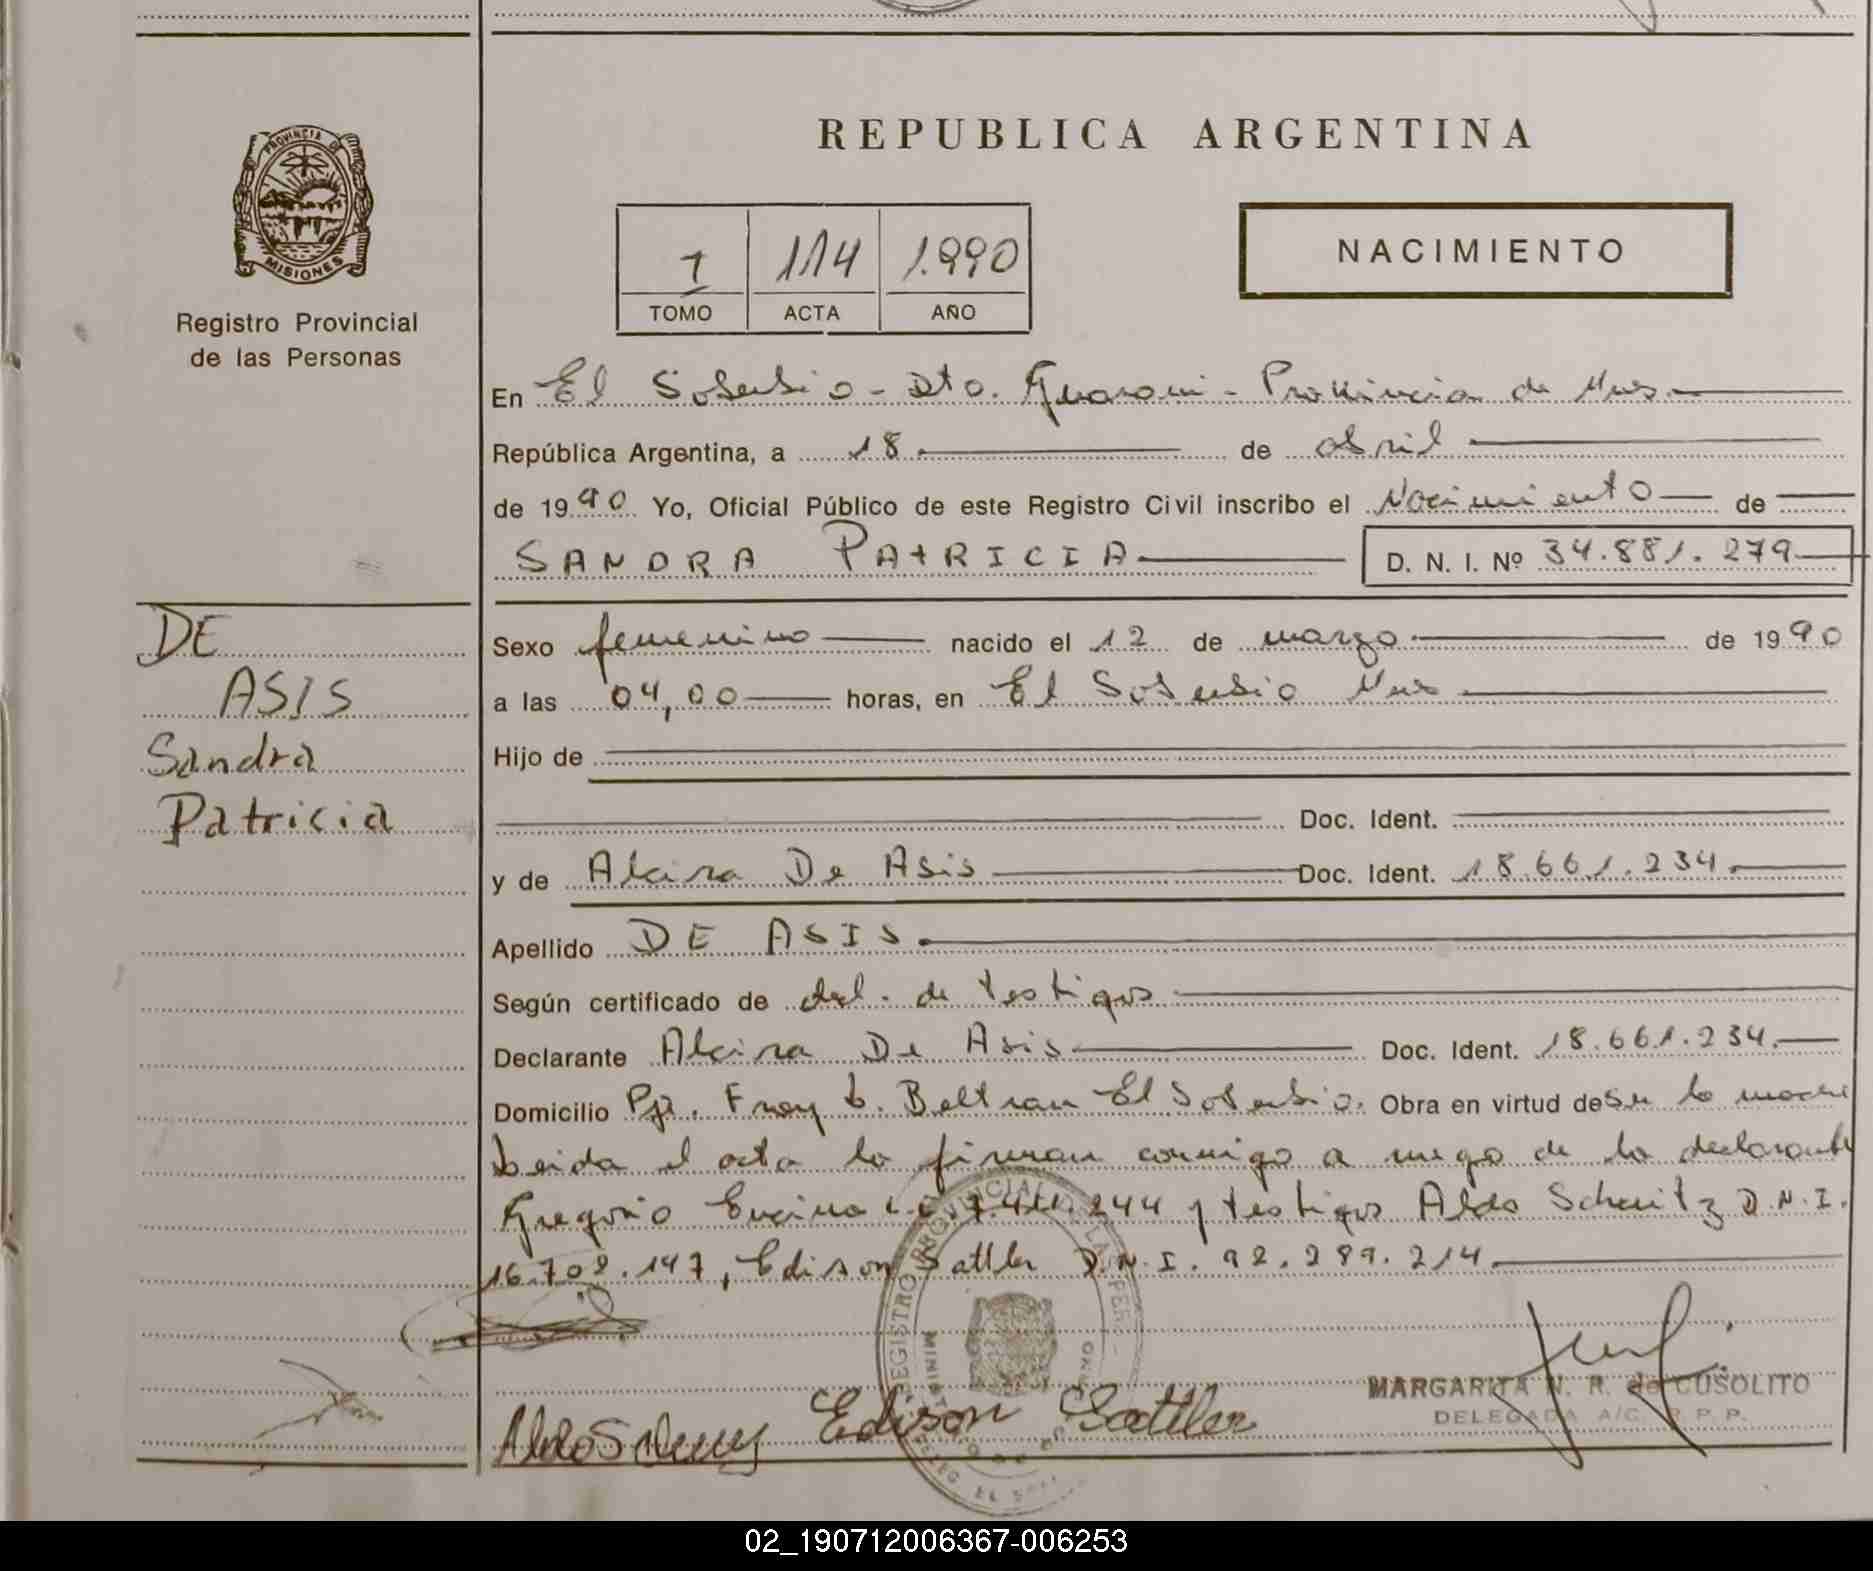 PROVINCIA DE
MISIONES
Registro Provincial
de las Personas
REPUBLICA ARGENTINA
1 114 1.990
TOMO ACTA AÑO
NACIMIENTO
En El Soberbio - Dto. Guarani - Provincia de Mnes.
República Argentina, a 18 de abril
de 1990 Yo, Oficial Público de este Registro Civil inscribo el Nacimiento de
SANDRA PATRICIA D. N. I. Nº 34.881.279
DE
ASIS
Sandra
Patricia
Sexo femenino nacido el 12 de marzo de 1990
a las 04,00 horas, en El Soberbio Mnes
Hijo de
Doc. Ident.
y de Alcira De Asis Doc. Ident. 18.661.234
Apellido DE ASIS
Según certificado de decl. de testigos
Declarante Alcira De Asis Doc. Ident. 18.661.234
Domicilio Pje. Fray L. Beltran El Soberbio. Obra en virtud de Ser la madre
Leida el acta la firman conmigo a ruego de la declarante
Gregorio Encina 244 y testigos Aldo D.N.I.
16.708.147, Edison Sattler D.N.I. 92.289.214
MARGARITA N. R. de CUSOLITO
DELEGADA A/C. R. P. P.
Aldo
Edison Sattler
REGISTRO PROVINCIAL DE LAS PER
DELEG. EL
02_190712006367-006253